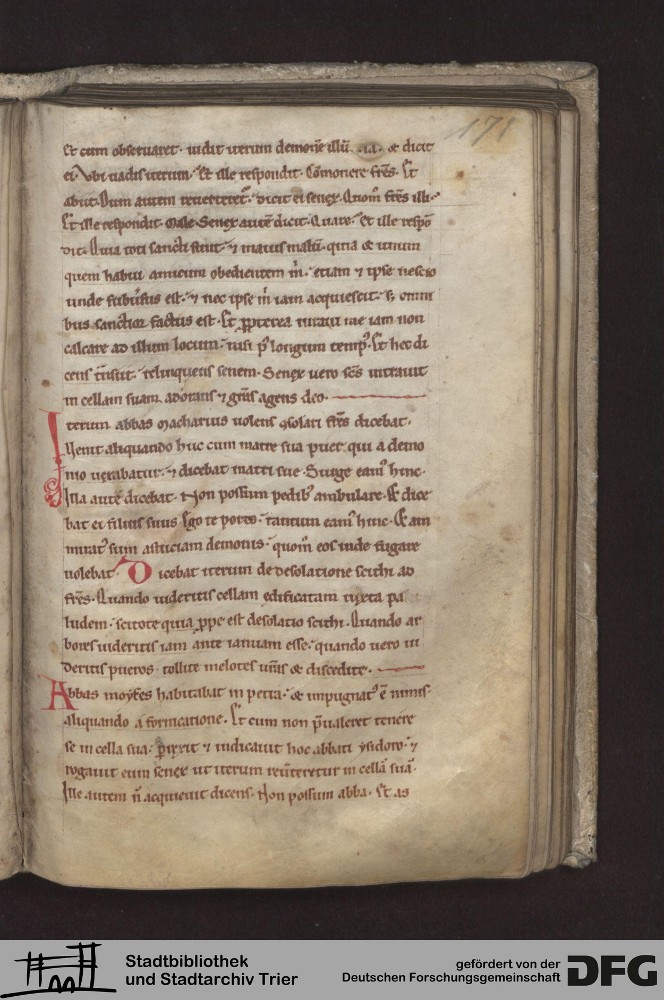 171
Et cum obseruaret. uidit iterum demonē illū uia. & dicit
ei. Vbi uadis iterum. Et ille respondit. Cōmonere frēs. Et
abiit. Dum autem reuerteret᷑. dicit ei senex. Quom̄ frēs illi.
Et ille respondit. Male. Senex autē dicit. Quare. Et ille respō
dit. Quia toti sancti sunt. ⁊ maius malū. quia & unum
quem habui amicum obedientem m̄. etiam ⁊ ipse nescio
unde subuersus est. ⁊ nec ipse m̄ iam acquiescit. s; omni
bus sanctior factus est. Et ꝓpterea iuraui me iam non
calcare ad illum locum. nisi p᷒ longum temp᷒. Et hec di
cens t̄nsiit. relinquens senem. Senex uero scs̄ intrauit
in cellam suam adorans ⁊ grās agens deo.
Iterum abbas Macharius uolens ꝯsolari frēs dicebat.
Venit aliquando huc cum matre sua puer qui a demo
nio uexabatur. ⁊ dicebat matri sue. Surge eam᷒ hinc.
Illa autē dicebat. Non possum pedib᷒ ambulare. Et dice
bat ei filius suus. Ego te porto. tantum eam᷒ hinc. Et am
mirat᷒ sum astuciam demonis. quom̄ eos inde fugare
uolebat. Dicebat iterum de desolatione scithi ad
frēs. Quando uideritis cellam edificatam iuxta pa
ludem. scitote quia ꝓpe est desolatio scithi. Quando ar
bores uideritis iam ante ianuam esse. quando uero ui
deritis pueros. tollite melotes ur̄as & discedite.
Abbas moyses habitabat in petra. & impugnat᷒ ē nimis.
aliquando a fornicatione. Et cum non p̄ualeret tenere
se in cella sua. ꝑrexit ⁊ indicauit hoc abbati ysidoro. ⁊
rogauit eum senex ut iterum reūteretur in cellā suā.
Ille autem n̄ acquieuit dicens. Non possum abba. Et as
Stadtbibliothek
und Stadtarchiv Trier
gefördert von der
Deutschen Forschungsgemeinschaft
DFG